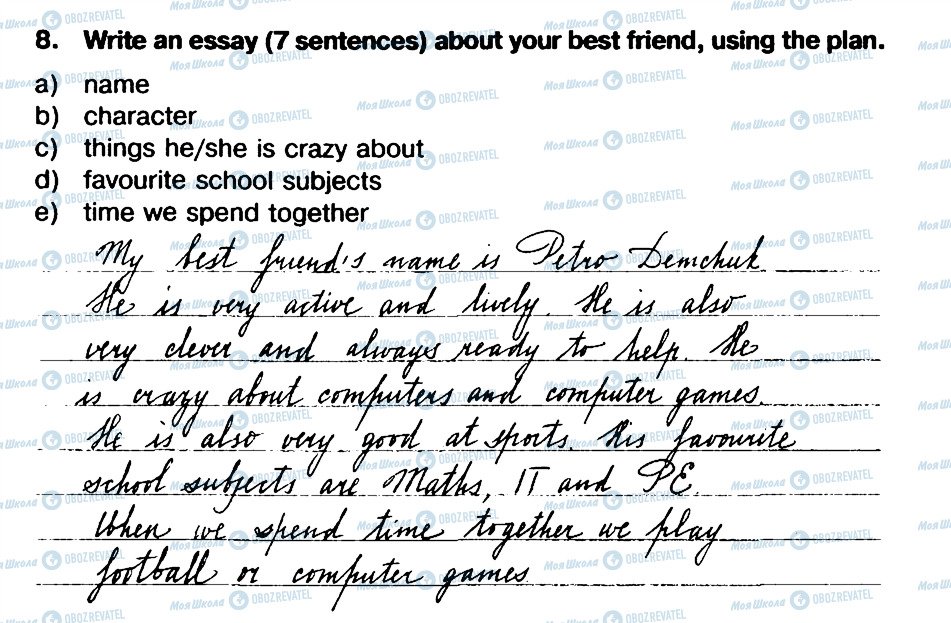 8. Write an essay (7 sentences) about your best friend, using the plan.
a) name
b) character
c) things he/she is crazy about
d) favourite school subjects
e) time we spend together
My best friend's name is Petro Demchuk
He is very active and lively. He is also
very clever and always ready to help. He
is crazy about computers and computer games.
He is also very good at sports. His favourite
school subjects are Maths, IT and PE
When we spend time together we play
football or computer games
Моя Школа OBOZREVATEL